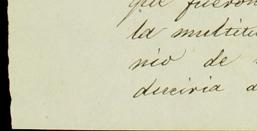 que fueron
la multitu
nio de
duciria a